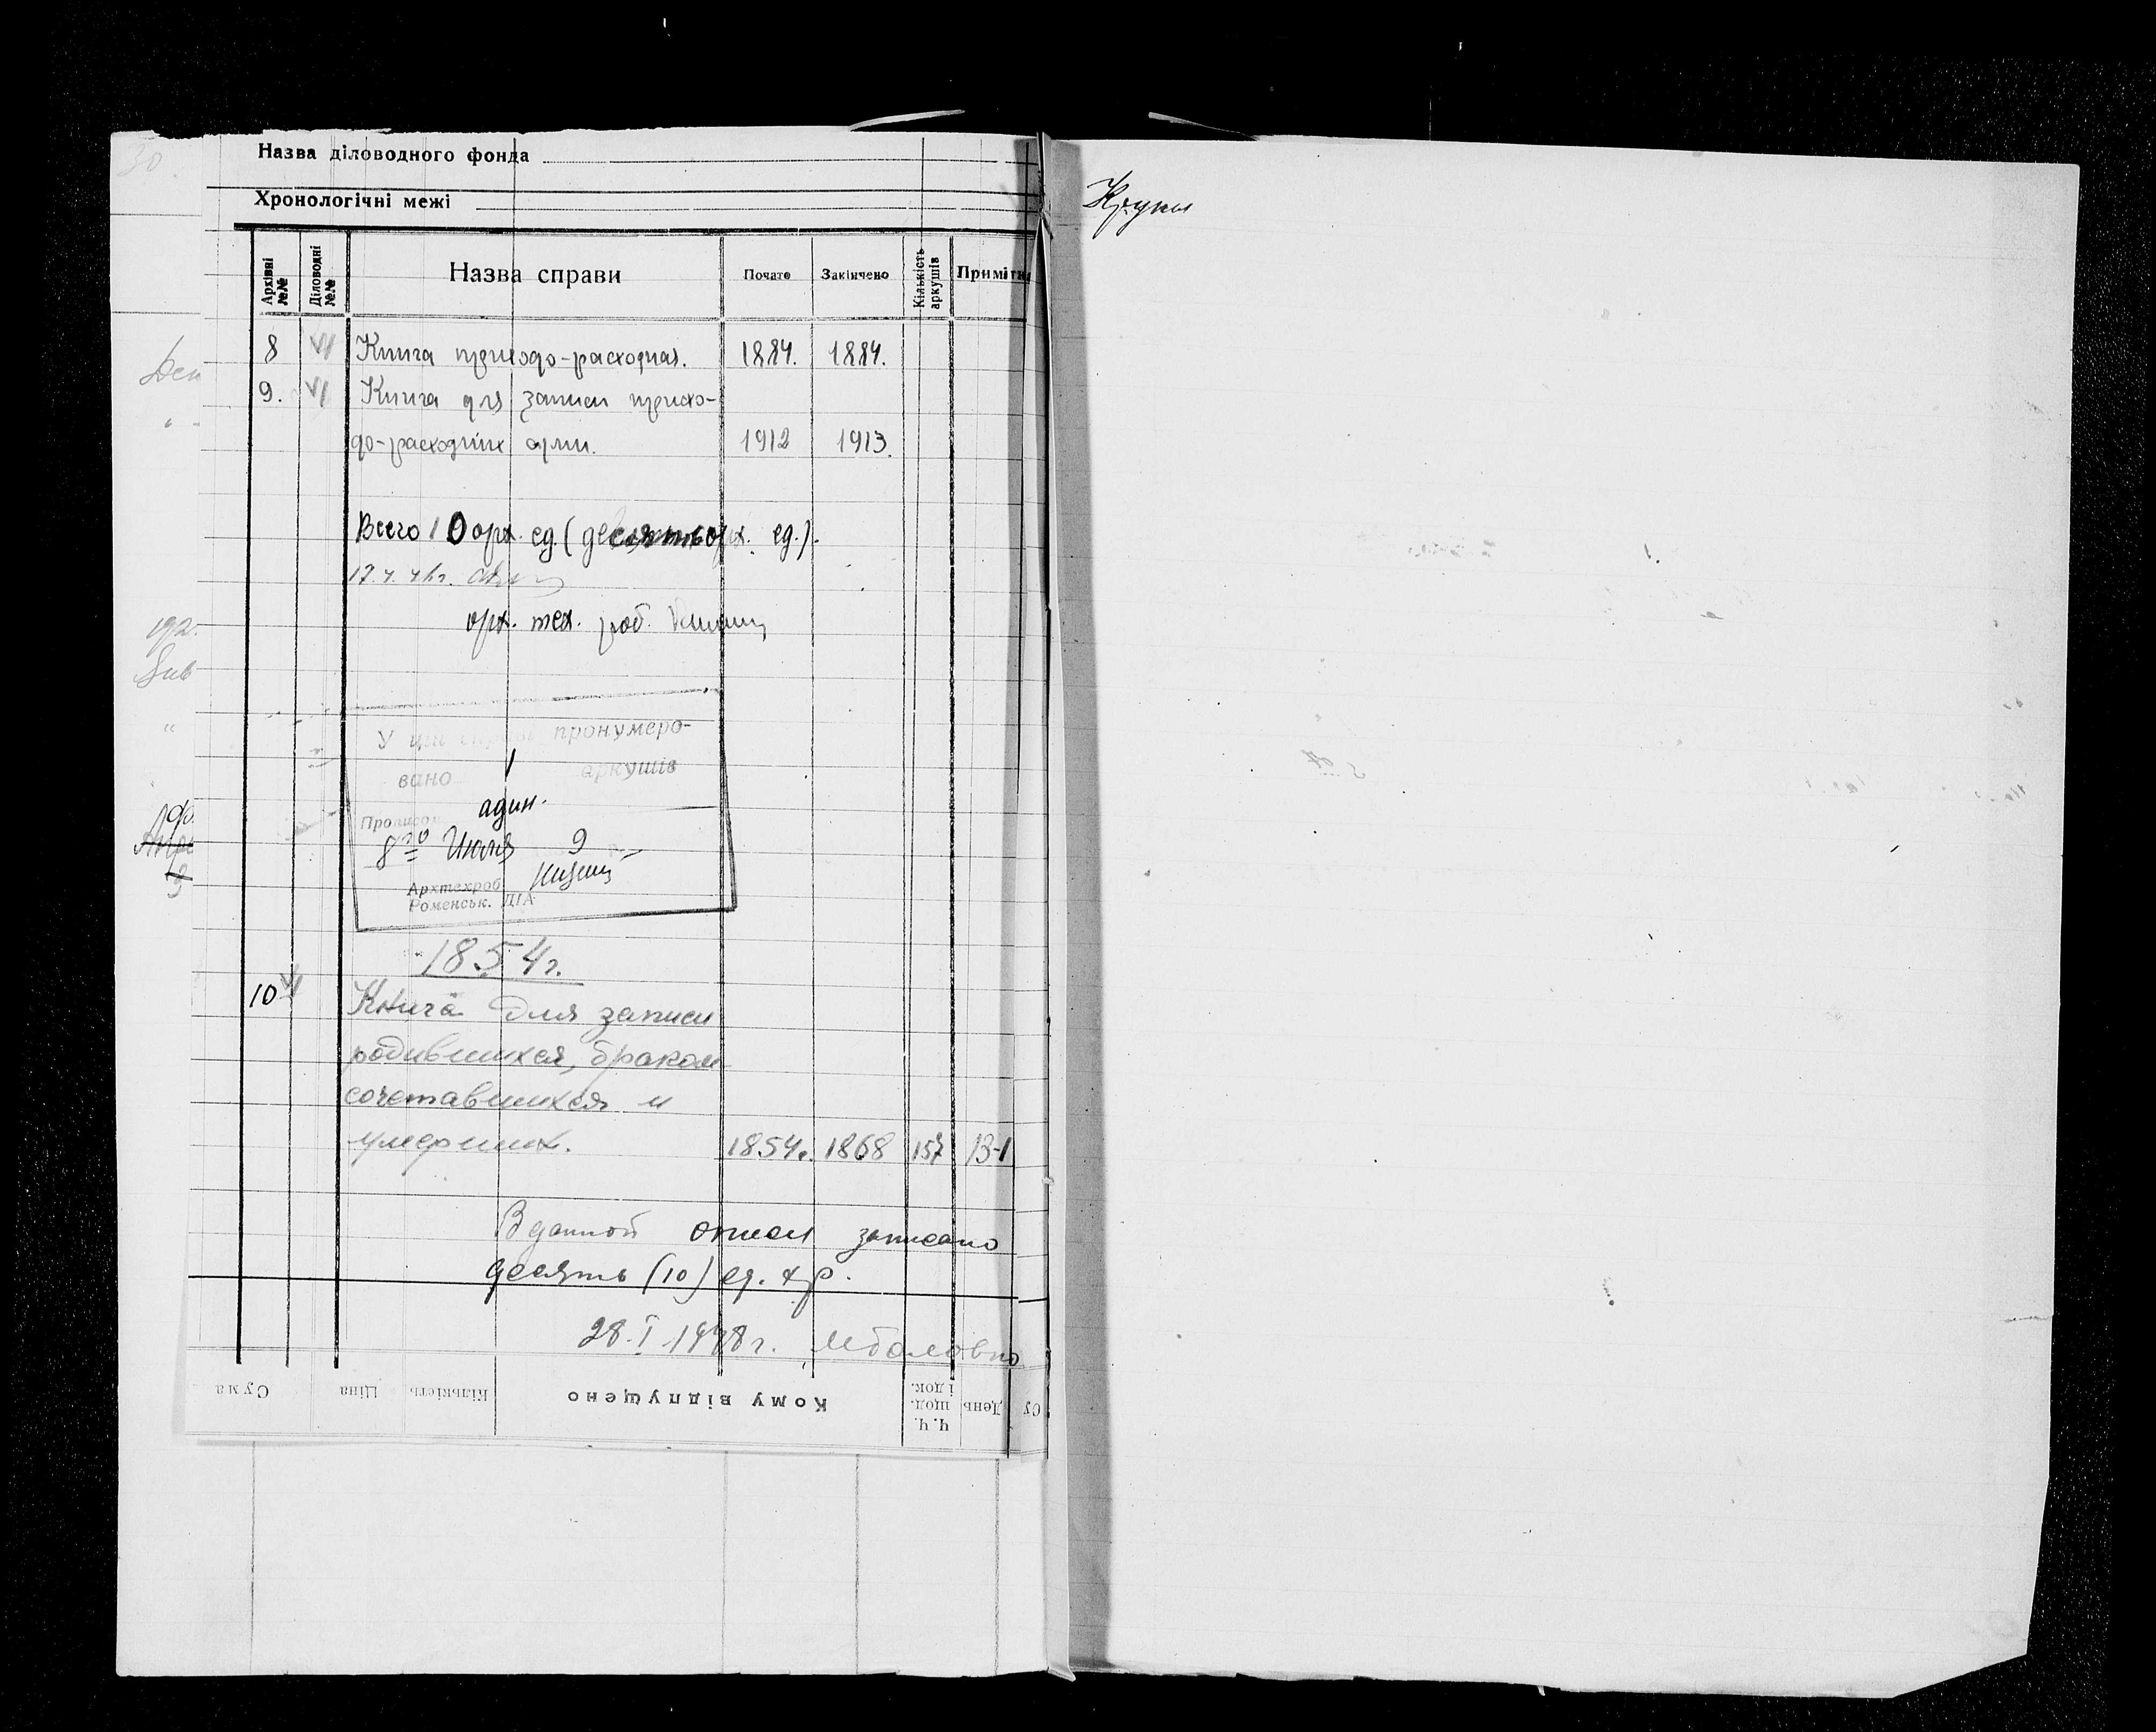 30
Назва діловодного фонда
Хронологічні межі
Архівні №№ Діловодні №№ Назва справи Почато Закінчено Кількість аркушів Приміт
8 Книга приходо-расходная. 1884. 1884.
9. Книга для записи прихо-
до-расходных 1912 1913.
Всего 10 арх. ед. (десять арх. ед.).
арх. тех. роб.
У цій справі пронумеро-
вано 1 аркушів
адин.
Прописом
8го Июля 9
Архтехроб.
Роменськ. ДІА
1854г.
10 Книга для записи
родившихся, браком
сочетавшихся и
умерших. 1854г. 1868 157 13-1
В данной описи записано
десять (10) ед. хр.
28.I 1948г.
Сума Ціна Кількість Кому відпущено Ч.Ч. щод. і док. День Су